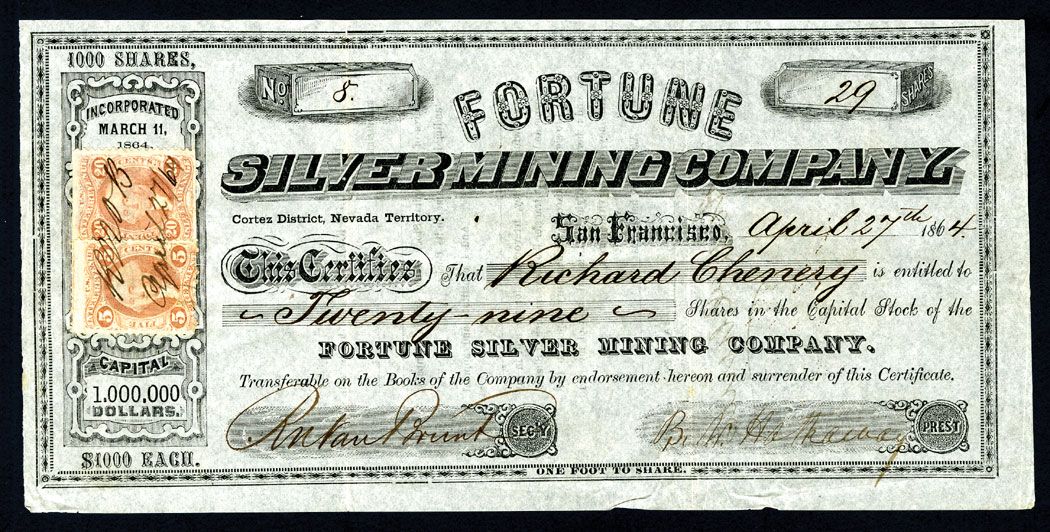 1000 SHARES,
INCORPORATED
MARCH 11,
1864.
20 CENTS 20
5 5
April 27/64
CAPITAL
1.000.000
DOLLARS.
$1000 EACH.
No. 8.
29 SHARES
FORTUNE
SILVER MINING COMPANY.
Cortez District, Nevada Territory.
San Francisco, April 27th 1864.
This Certifies That Richard Chenery is entitled to
Twenty-nine Shares in the Capital Stock of the
FORTUNE SILVER MINING COMPANY.
Transferable on the Books of the Company by endorsement hereon and surrender of this Certificate.
SEC'Y
B. W. Hathaway PREST
ONE FOOT TO SHARE.